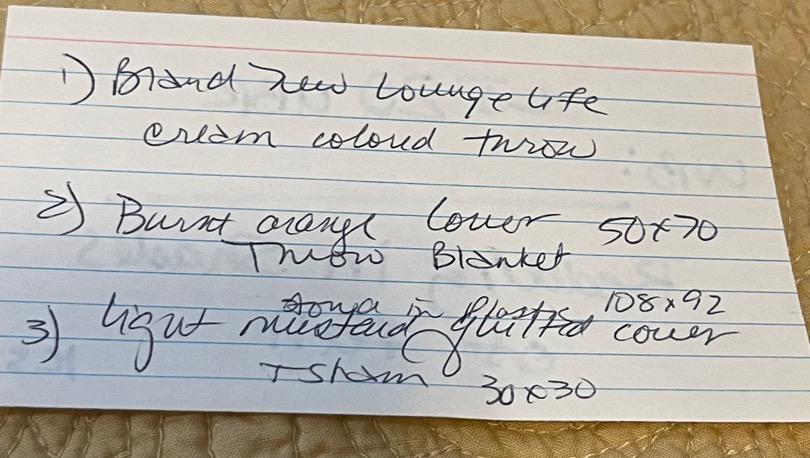 1) Brand new Lounge life
cream colored throw
2) Burnt orange Cover 50x70
Throw Blanket
in plastic 108x92
3) light mustard quilted cover
+ sham 30x30